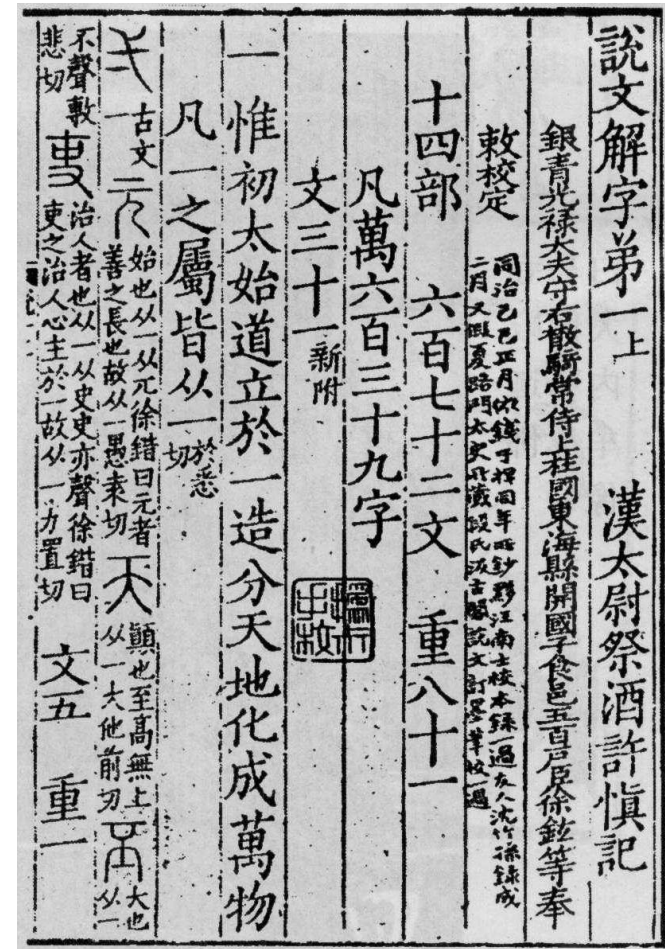 說文解字弟一上 漢太尉祭酒許愼記
銀青光祿大夫守右散騎常侍上柱國東海縣開國子食邑五百戶臣徐鉉等奉
敕校定
同治己巳正月依錢子
十四部 六百七十二文 重八十一
凡萬六百三十九字
文三十一新附
一 惟初太始道立於一造分天地化成萬物
凡一之屬皆从一於悉切
弌 古文一 元 始也从一从兀徐鍇曰元者善之長也故从一愚袁切 天 顚也至高無上从一大他前切 丕 大也从一
不聲敷悲切 吏 治人者也从一从史史亦聲徐鍇曰吏之治人心主於一故从一力置切 文五 重一